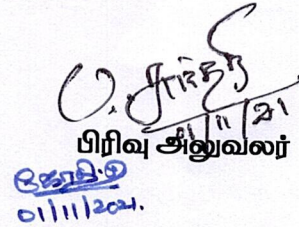 ப. சாந்தி
1/11/21
பிரிவு அலுவலர்
01/11/2021.